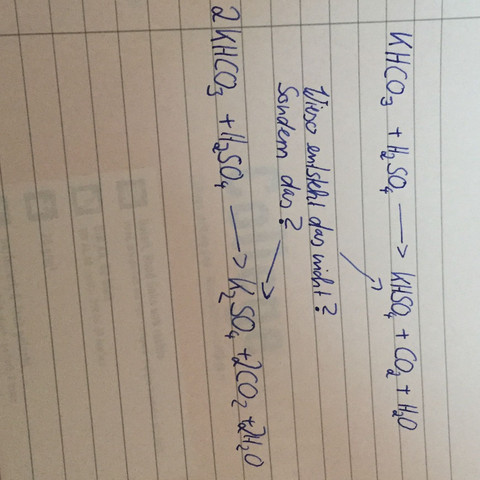 KHCO₃ + H₂SO₄ → KHSO₄ + CO₂ + H₂O
Wieso entsteht das nicht?
Sondern das?
2KHCO₃ + H₂SO₄ → K₂SO₄ + 2CO₂ + 2H₂O